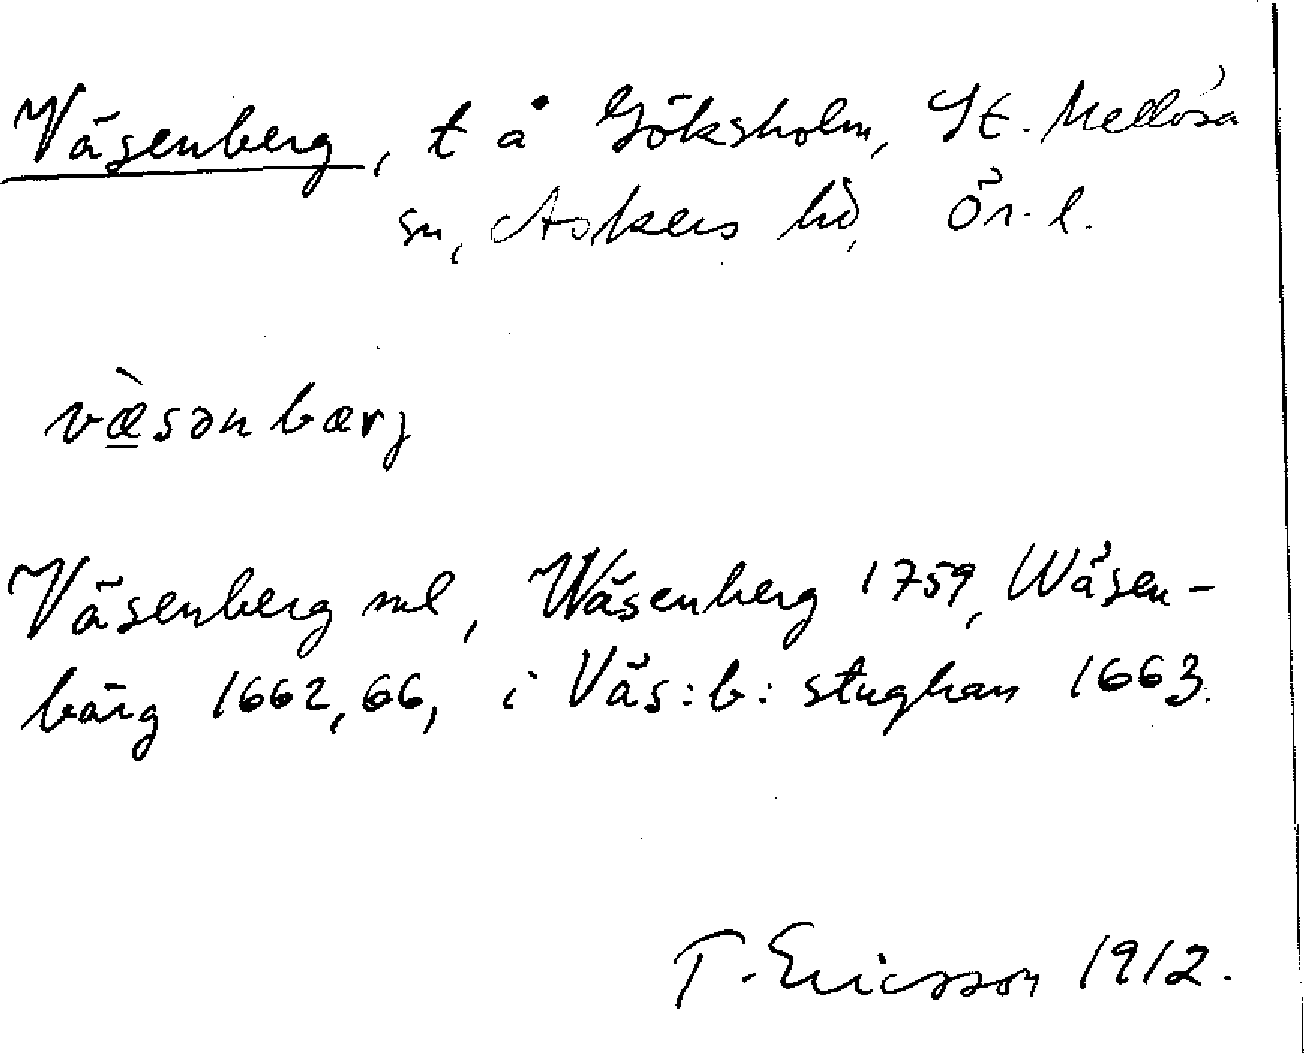 Väsenberg, t å Göksholm, St. Mellösa
sn, Askers hd, Ör. l.
væ̀sənbærj
Väsenberg ml, Wäsenberg 1759, Wäsen-
bärg 1662, 66, i Väs:b: stughan 1663.
T. Ericsson 1912.